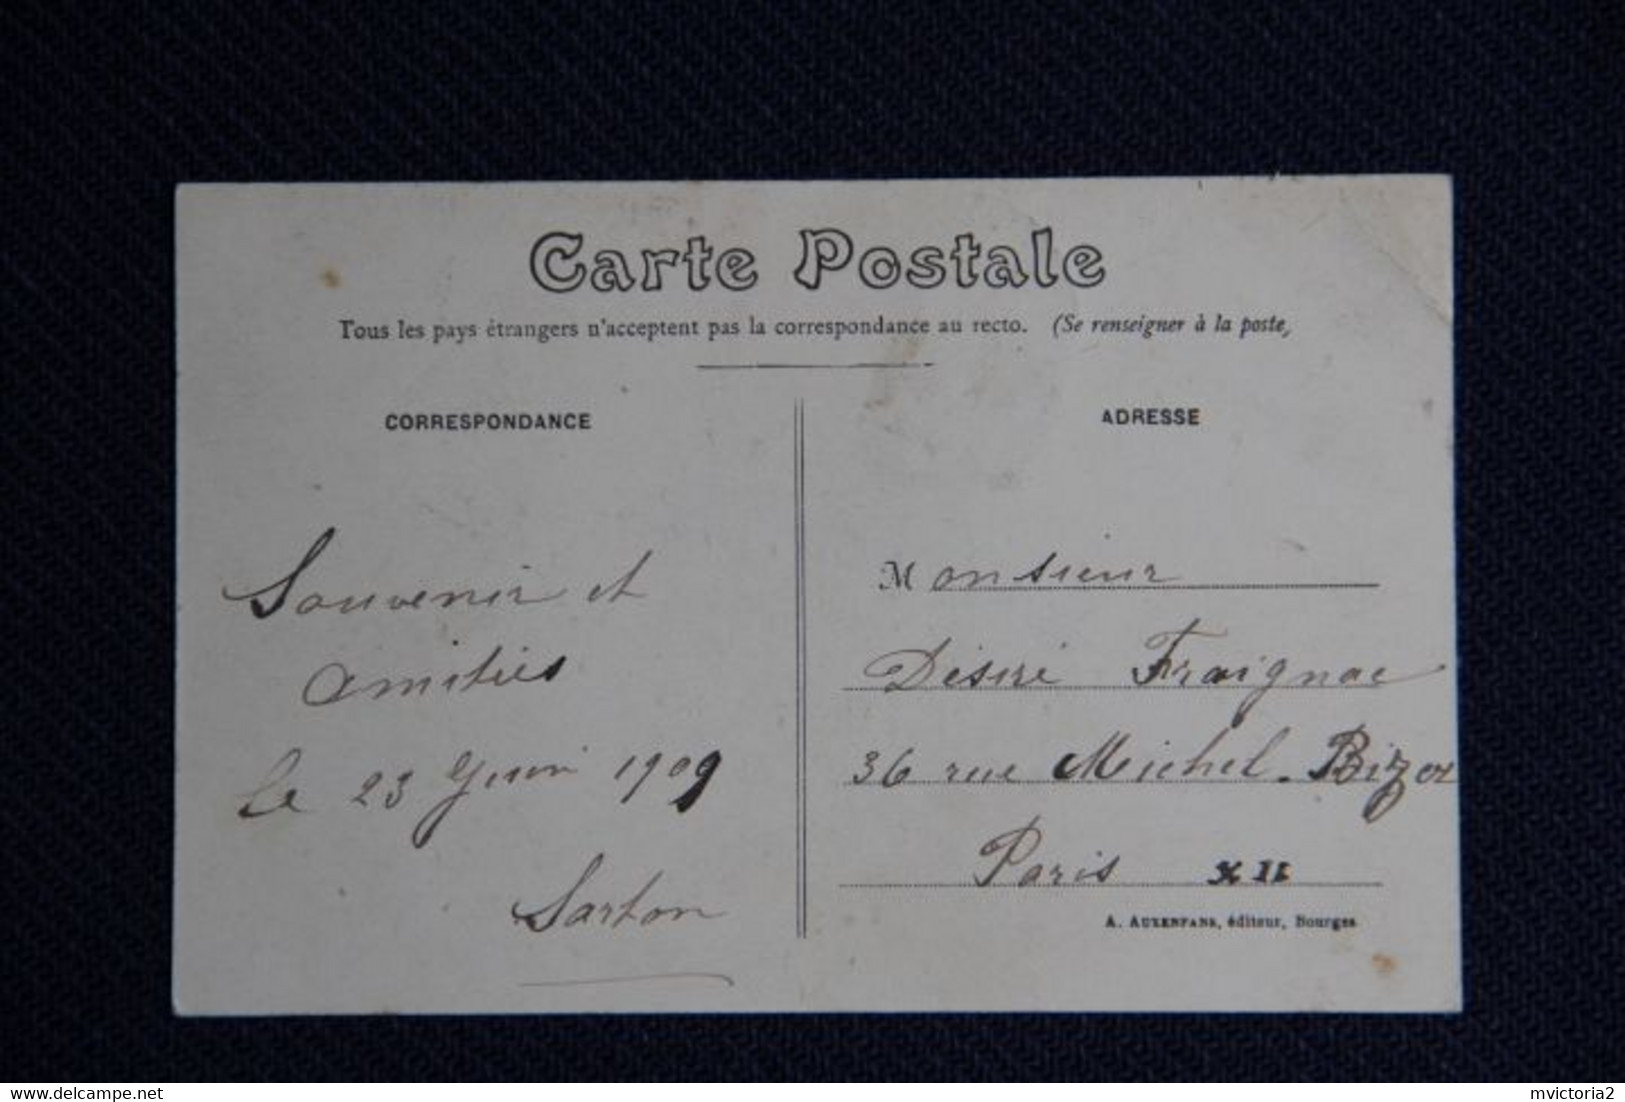 Carte Postale
Tous les pays étrangers n'acceptent pas la correspondance au recto. (Se renseigner à la poste)
CORRESPONDANCE
Souvenir et
amitiés
le 23 Juin 1909
Sarton
ADRESSE
Monsieur
Désiré Fraignac
36 rue Michel-Bizot
Paris XII
A. AUXENFANS, éditeur, Bourges
mvictoria2